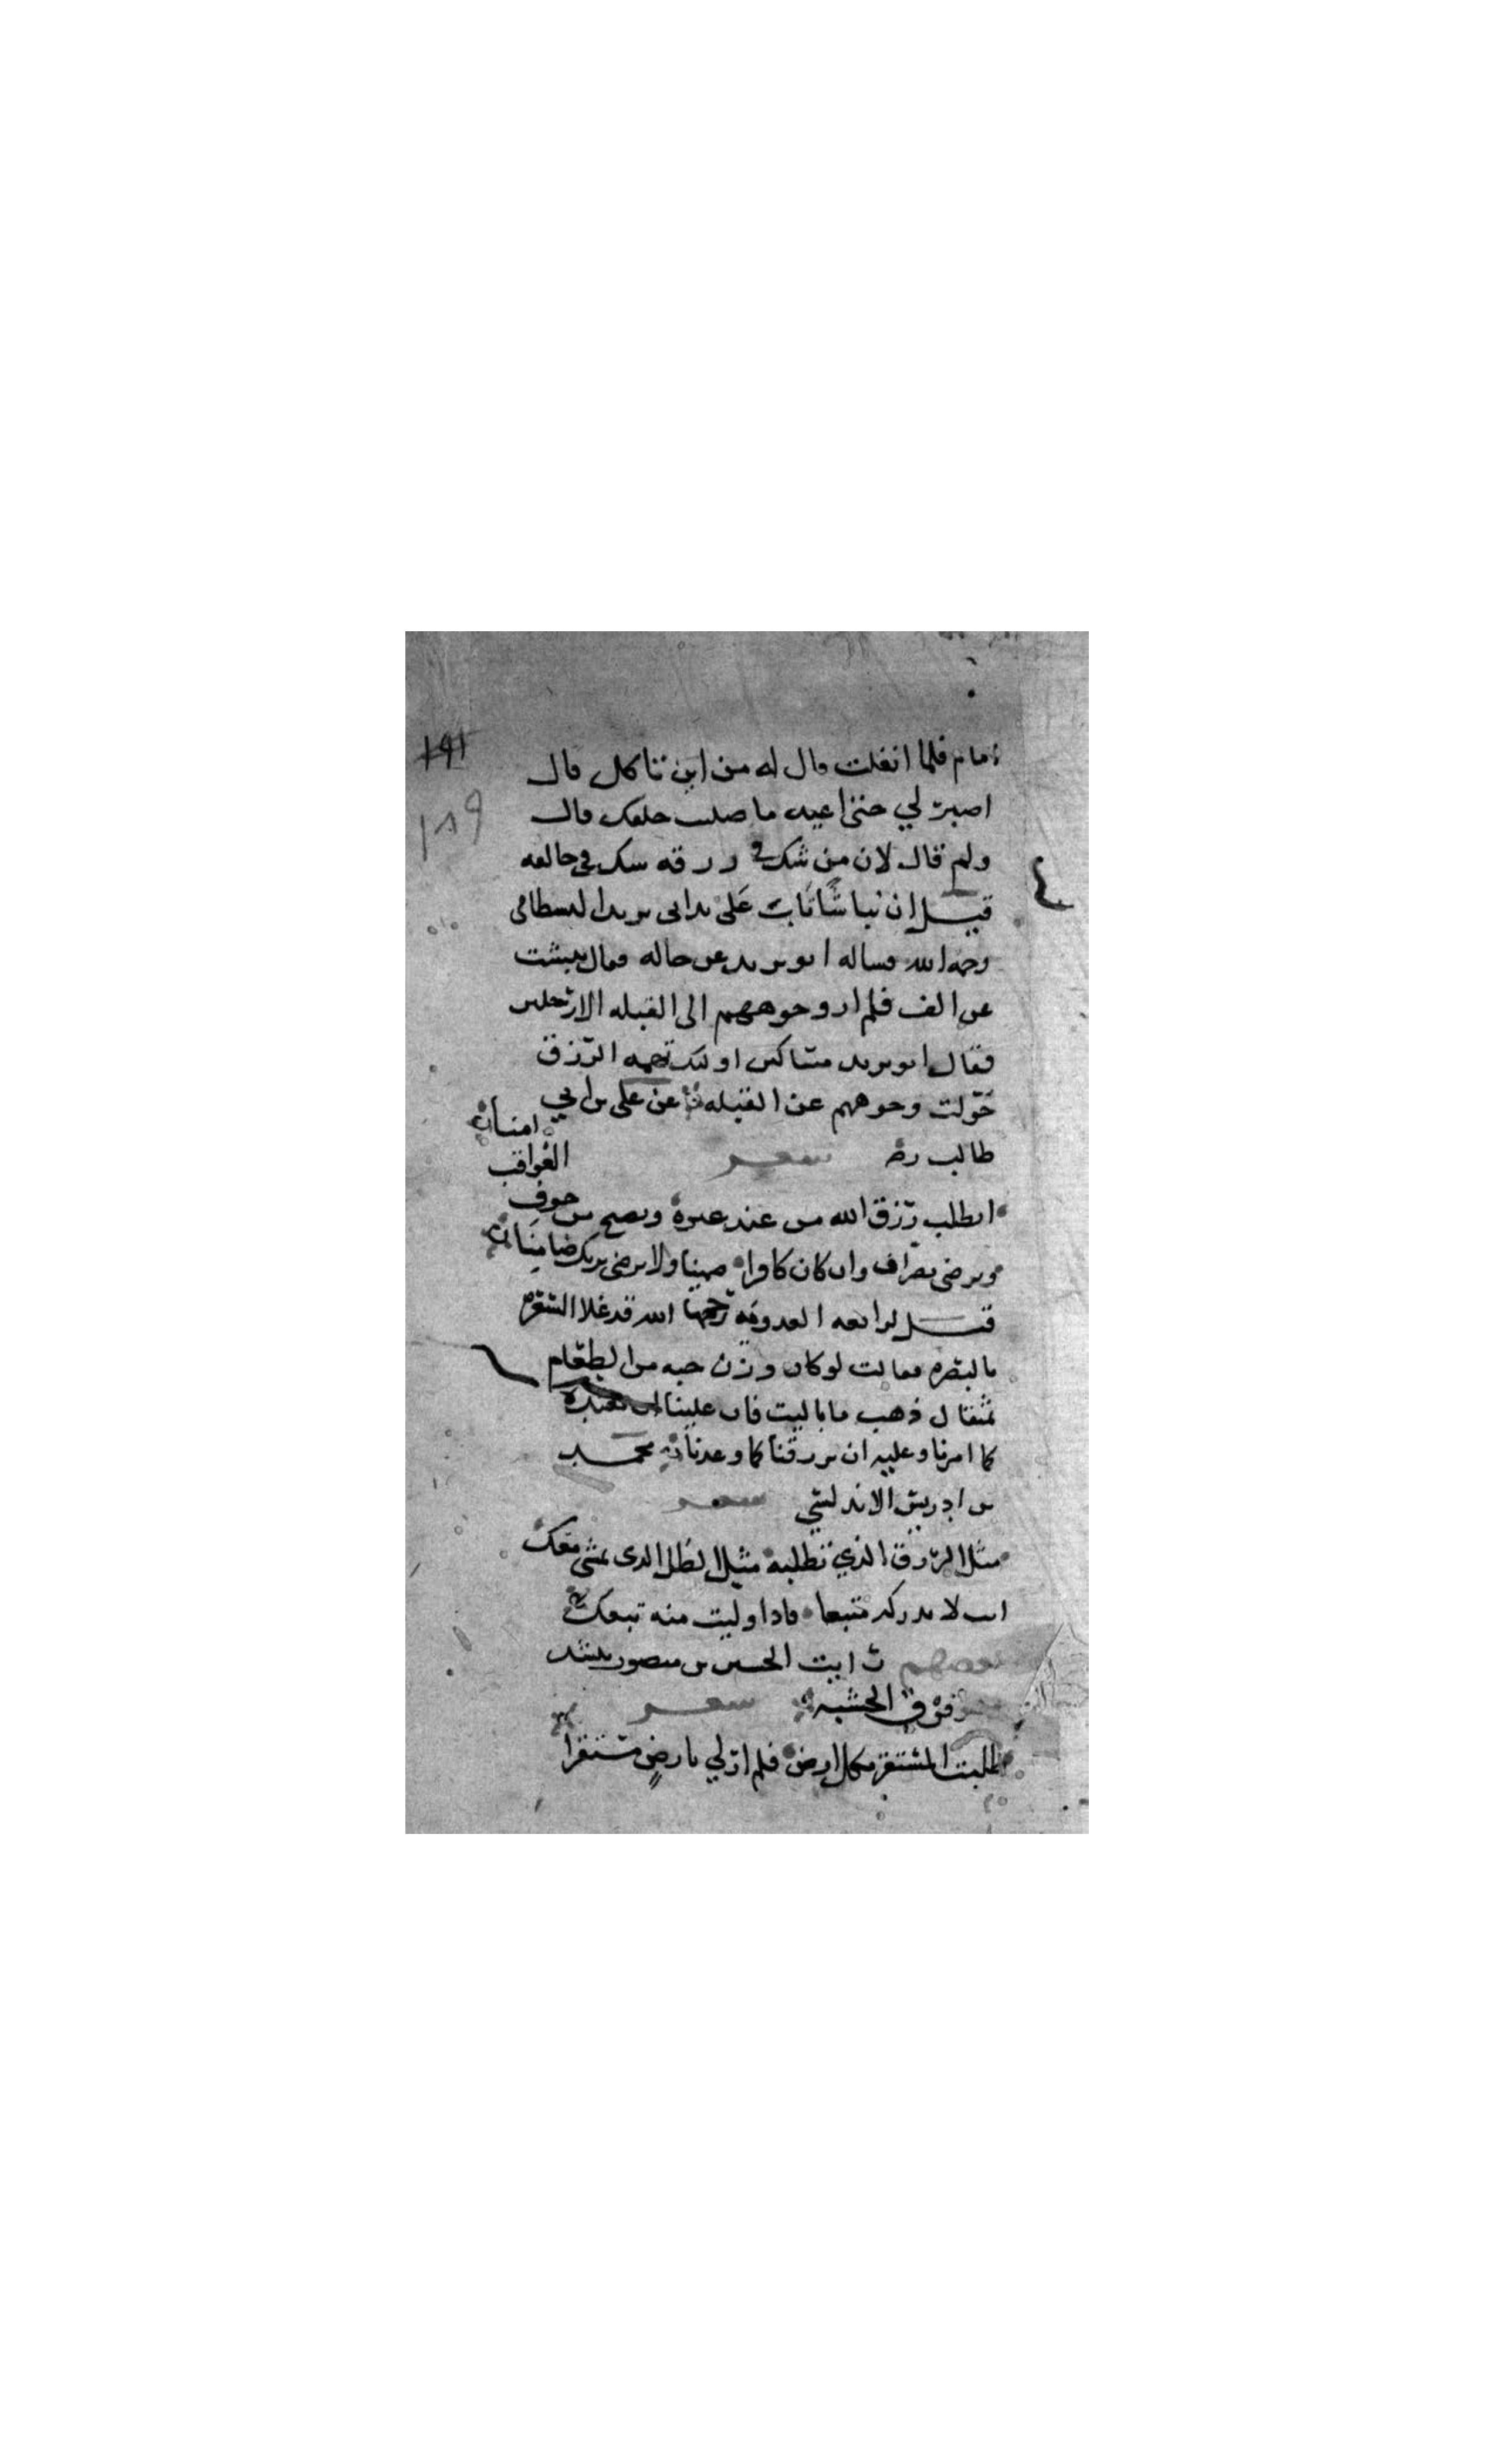 امام فلما انفلت قال له من اين تاكل قال
اصبر لي حتى اعيد ما صليت خلفك قال
ولم قال لان من شك في رزقه شك في خالقه
قيل ان نباشا تاب على يد ابي يزيد البسطامي
رحمه الله فساله ابو يزيد عن حاله فقال نبشت
عن الف فلم ار وجوههم الى القبله الا رجلين
فقال ابو يزيد مساكين اولئك تهمه الرزق
حولت وجوههم عن القبله عن علي بن ابي
طالب رضه شعر
اتطلب رزق الله من عند غيره وتصبح من خوف العواقب امنا
وترضى بصراف وان كان كافرا ضمينا ولا ترضى بربك ضامنا
قيل لرابعه العدويه رحمها الله قد غلا السعر
بالبصره فقالت لو كان وزن حبه من الطعام
بمثقال ذهب ما باليت فان علينا ان نعبده
كما امرنا وعليه ان يرزقنا كما وعدنا محمد
بن ادريس الاندلسي شعر
مثل الرزق الذي تطلبه مثل الظل الذي يمشي معك
انت لا تدركه متبعا فاذا وليت منه تبعك
بعضهم رايت الحسين بن منصور ينشد
فوق الخشبه شعر
طلبت المستقر بكل ارض فلم ار لي بارض مستقرا
١٩١
١٨٩